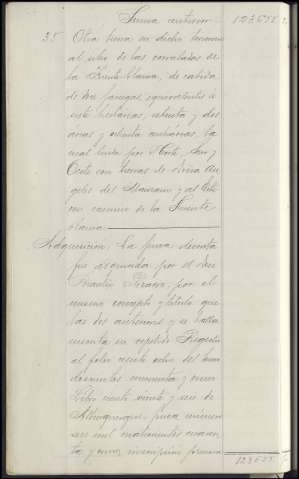 Suma anterior 123655
35 Otra tierra en dicho termino
al sitio de las corraladas de
la Fuente blanca, de cabida
de tres fanegas, equivalentes á
hectareas, ochenta y dos
areas y ochenta centiareas, la
cual linda por Norte, Sur y
Oeste con tierras de Maria An-
geles del Manzano y al Este
con camino de la Fuente
blanca.
Adquisicion: La finca descrita
fue adquirida por el
Martin por el
mismo concepto y titulo que
las dos anteriores y se halla
inscrita en repetido Registro
al folio ciento ocho del tomo
doscientos cincuenta y nueve
Libro ciento veinte y seis de
Alburquerque, finca numero
seis mil cuatrocientos cuaren-
ta y nueve, inscripcion primera
123655